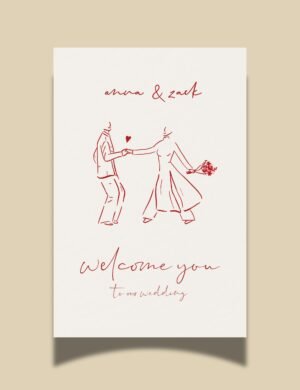 anna & zack
welcome you
to our wedding